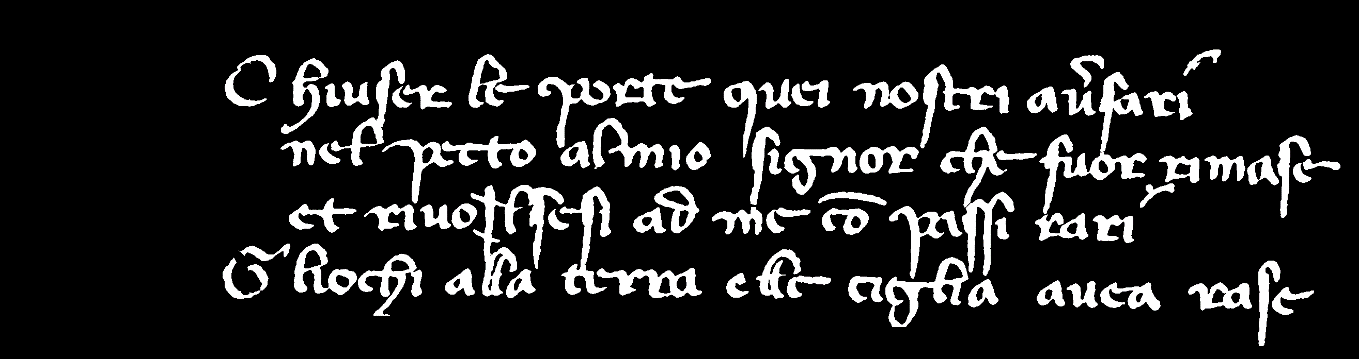 Chiuser le porte quei nostri auʼsari
nel petto al mio signor che fuor rimase
et riuolsesi ad me cō passi rari
Gliochi alla terra elle ciglia auea rase